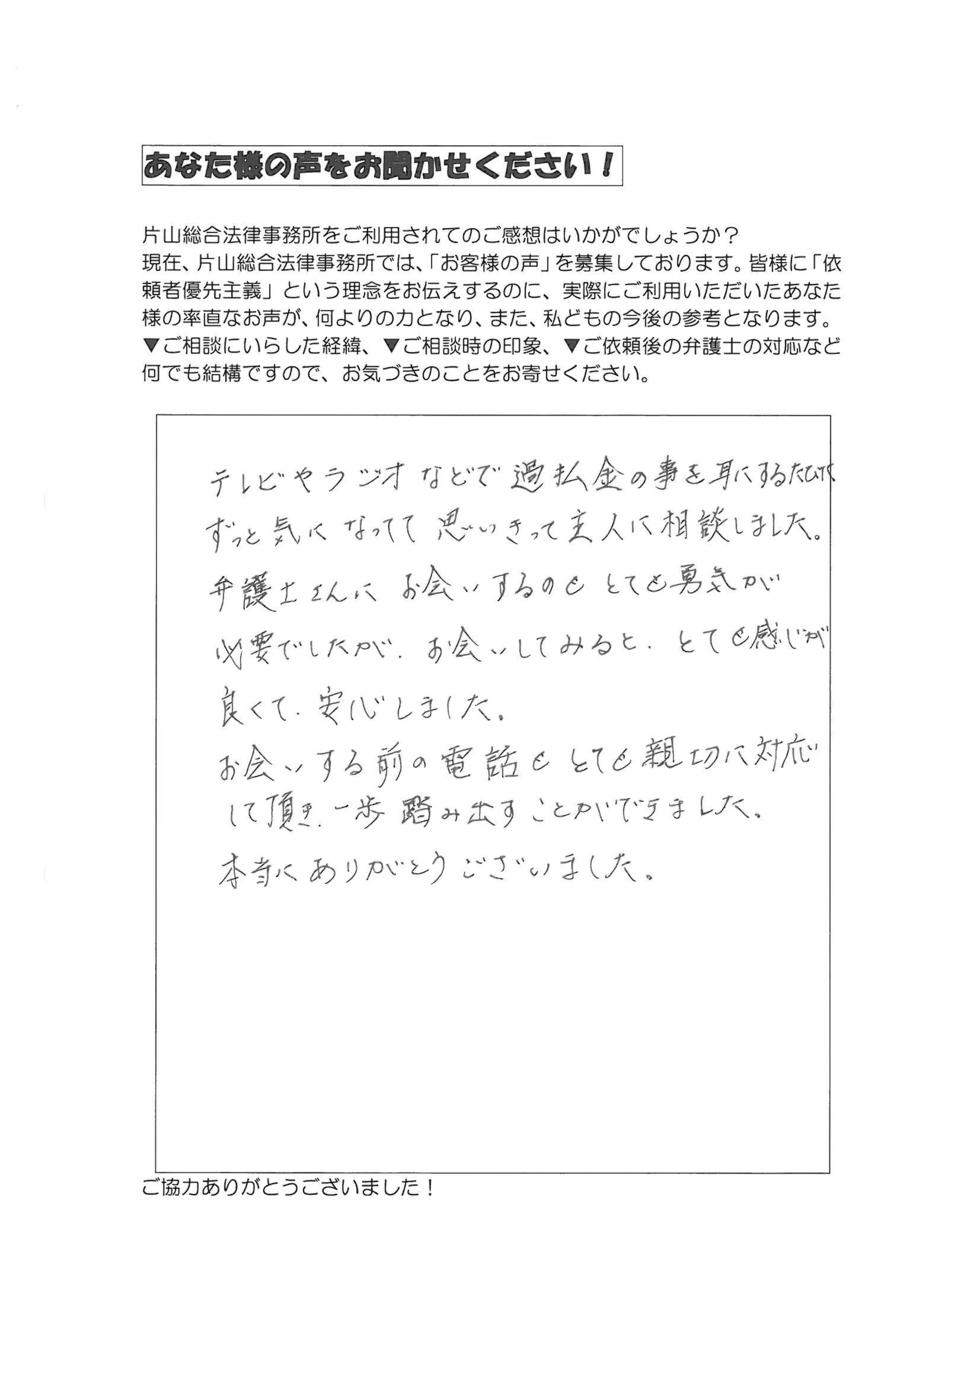 あなた様の声をお聞かせください！
片山総合法律事務所をご利用されてのご感想はいかがでしょうか？
現在、片山総合法律事務所では、「お客様の声」を募集しております。皆様に「依
頼者優先主義」という理念をお伝えするのに、実際にご利用いただいたあなた
様の率直なお声が、何よりの力となり、また、私どもの今後の参考となります。
▼ご相談にいらした経緯、▼ご相談時の印象、▼ご依頼後の弁護士の対応など
何でも結構ですので、お気づきのことをお寄せください。
テレビやラジオなどで過払金の事を耳にするたびに
ずっと気になってて思いきって主人に相談しました。
弁護士さんにお会いするのもとても勇気が
必要でしたが、お会いしてみると、とても感じが
良くて、安心しました。
お会いする前の電話もとても親切に対応
して頂き、一歩踏み出すことができました。
本当にありがとうございました。
ご協力ありがとうございました！